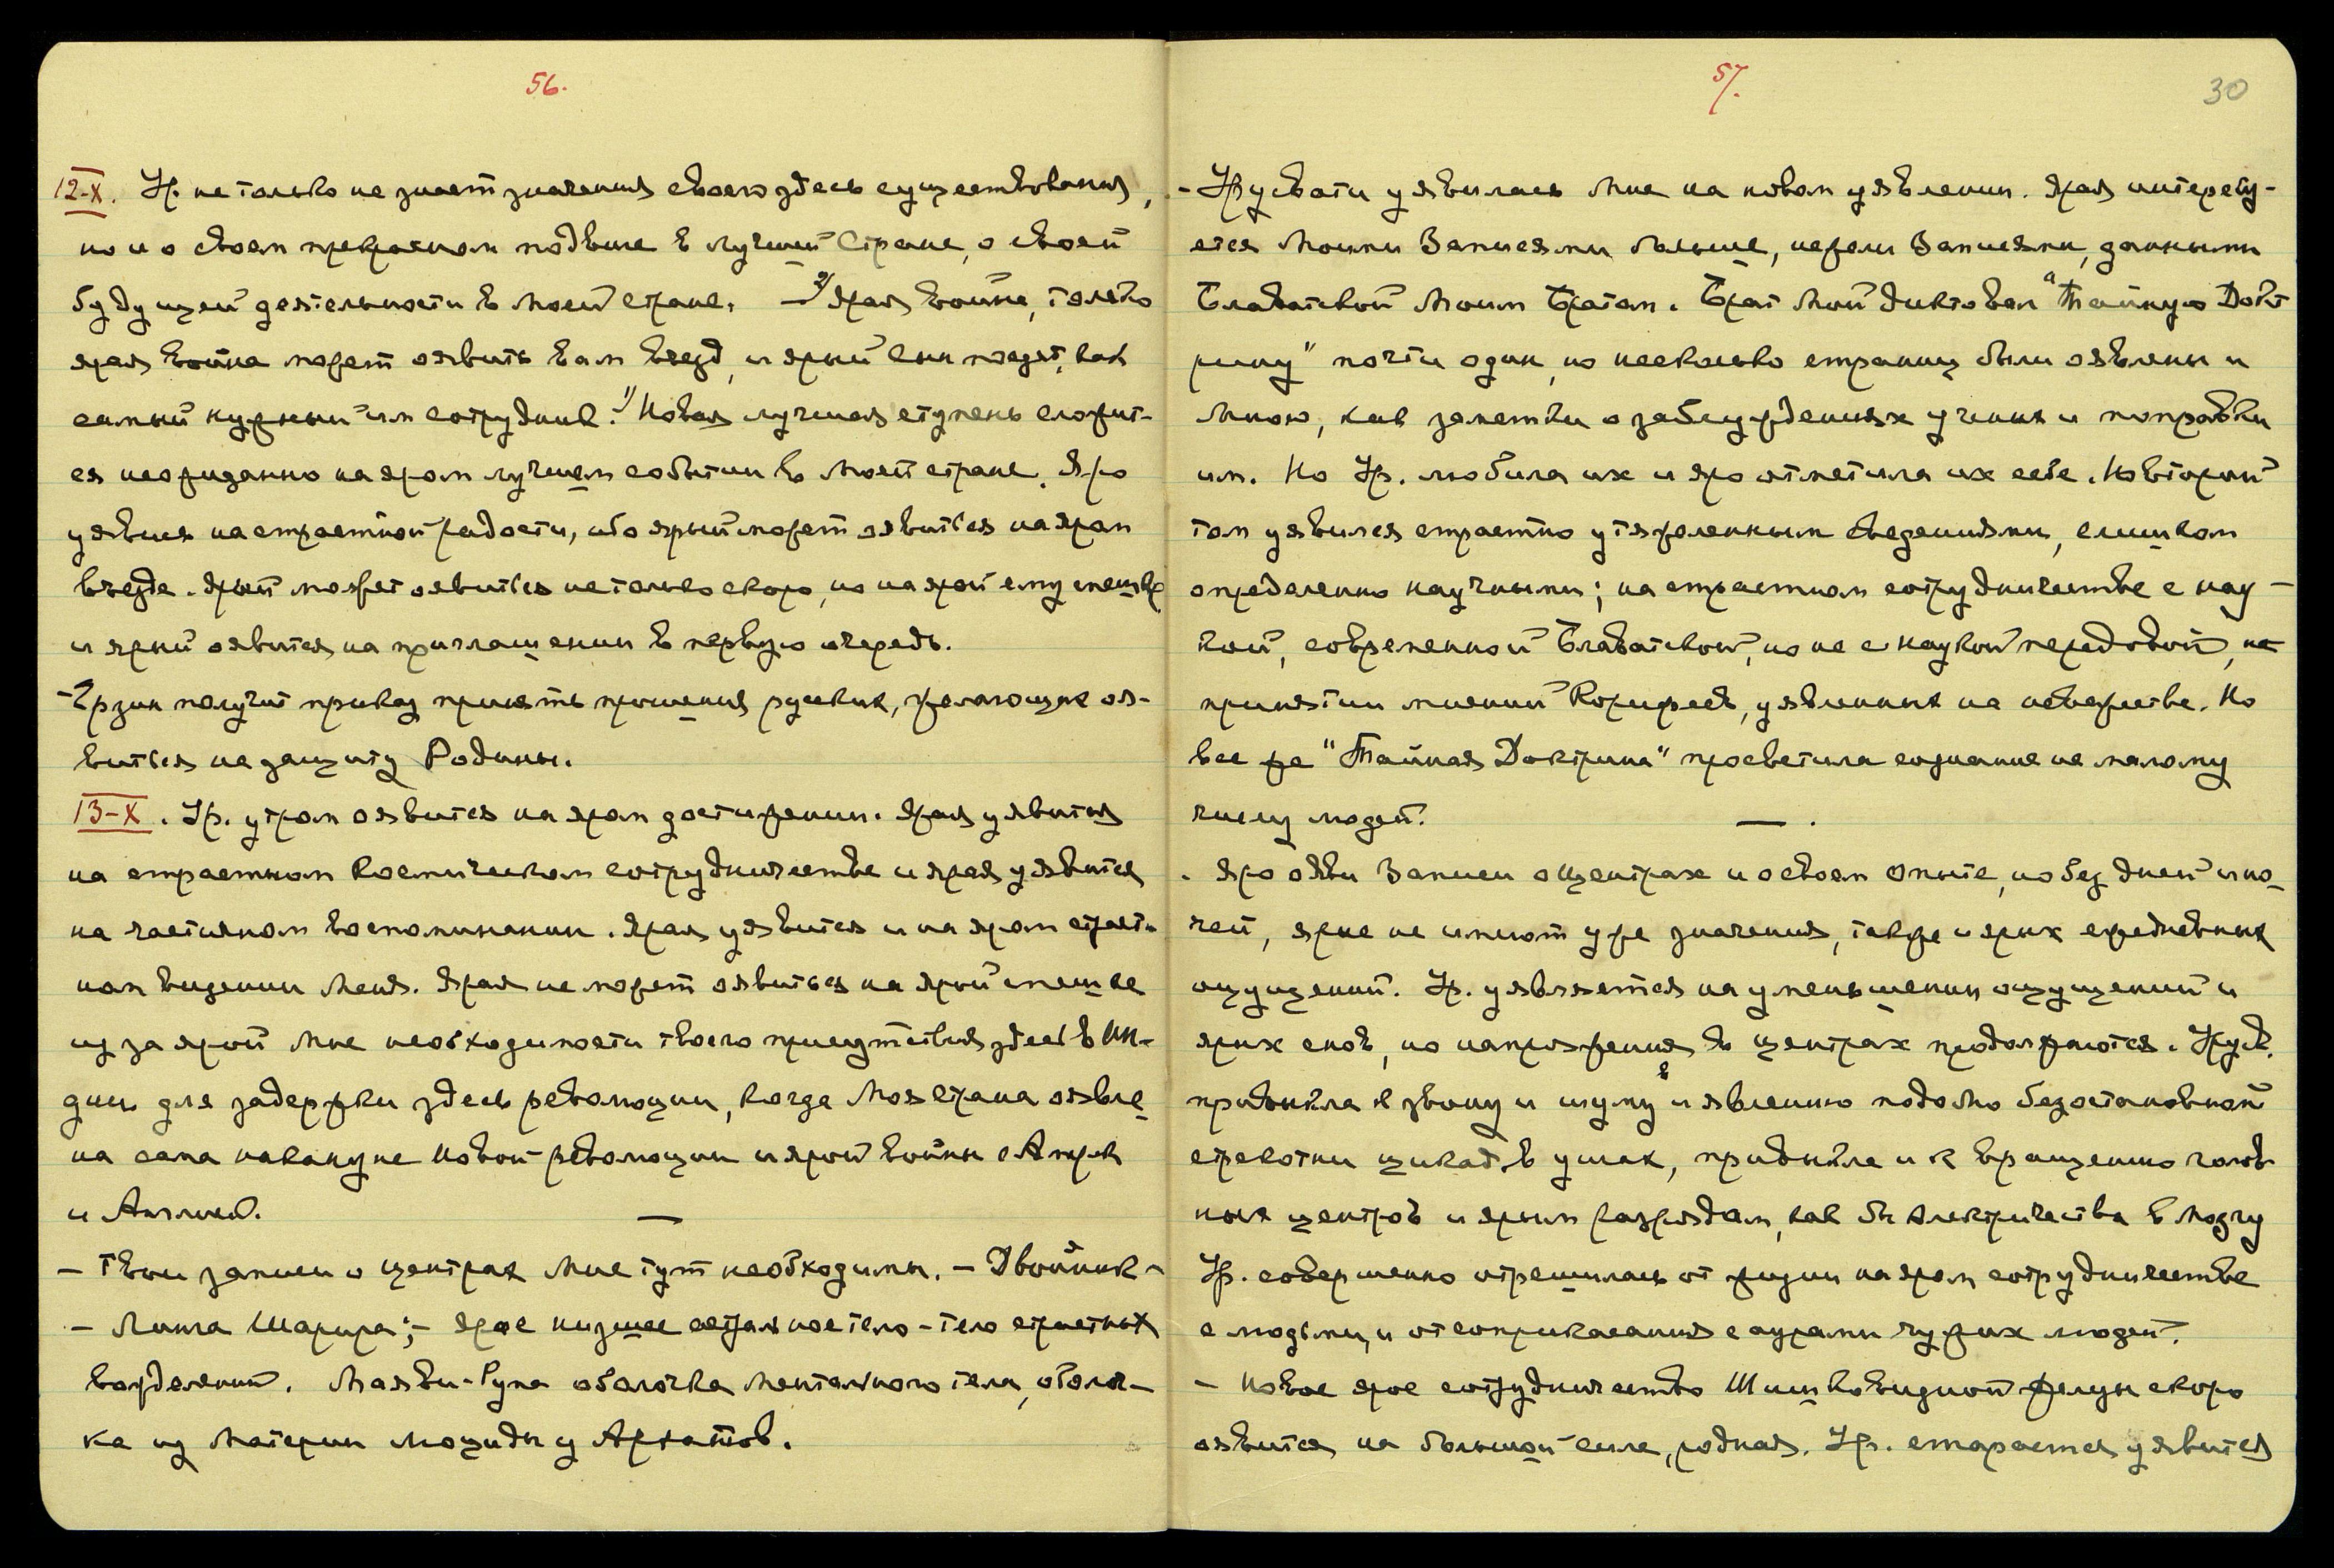 56.
12-X. Ур. не только не знает значения своего здесь существования,
но и о своем прекрасном подвиге в лучшей Стране, о своей
будущей деятельности в Моей стране. — 2) Ярая война, только
ярая война может оявить вам въезд, и ярый сын поедет, как
самый нужный им сотрудник. 1) Новая лучшая ступень сложит-
ся неожиданно на яром лучшем событии в Моей стране. Яро
уявись на страстной радости, ибо ярый может оявиться на яром
въезде. Ярый может оявиться не только скоро, но на ярой ему спешке
и ярый оявится на приглашении в первую очередь.
- Ерзин получит приказ принять прошения русских, желающих оя-
виться на защиту Родины.
13-X. Ур. утром оявится на яром достижении. Ярая уявится
на страстном Космическом сотрудничестве и ярая уявится
на частичном воспоминании. Ярая уявится и на яром страст-
ном видении Меня. Ярая не может оявиться на ярой спешке
из за ярой Мне необходимости твоего присутствия здесь в Ин-
дии для задержки здесь революции, когда Моя страна оявле-
на сама накануне новой революции и ярой войны с Америк
и Англией. —
— Твои записи о центрах Мне тут необходимы. — Двойник -
- Линга Шарира; - ярое низшее астральное тело - тело страстных
вожделений. Маяви-Рупа оболочка ментального тела, оболоч-
ка из Материи Люциды у Архатов.
57.
30
- Урусвати уявилась Мне на новом уявлении. Ярая интересу-
ется Моими Записями больше, нежели Записями, данными
Блаватской Моим Братом. Брат Мой диктовал "Тайную Докт
рину" почти один, но несколько страниц были оявлены и
Мною, как заметки о заблуждениях учения и поправки
им. Но Ур. любила их и яро отметила их себе. Но второй
том уявился страстно утяжеленным сведениями, слишком
определенно научными; на страстном сотрудничестве с нау-
кой, современной Блаватской, но не с наукой передовой, не
принятии мнений Корифеев, уявленных на невежестве. Но
все же "Тайная Доктрина" просветила сознание не малому
числу людей. — .
. Яро ояви Записи о Центрах и о своем опыте, но без дней и но-
чей, ярые не имеют уже значения, также и ярых ежедневных
ощущений. Ур. уявляется на уменьшении ощущений и
ярых снов, но напряжения в центрах продолжаются. Урусв.
привыкла к звону и шуму в и явленно подобно безостановочной
стрекотни цикад в ушах, привыкла и к вращению голов-
ных центров и ярым разрядам, как бы электричества в мозгу
Ур. совершенно отрешилась от жизни на яром сотрудничестве
с людьми, и от соприкасания с аурами чужих людей.
- Новое ярое сотрудничество Шишковидной железы скоро
оявится на большой силе, родная. Ур. старается уявится